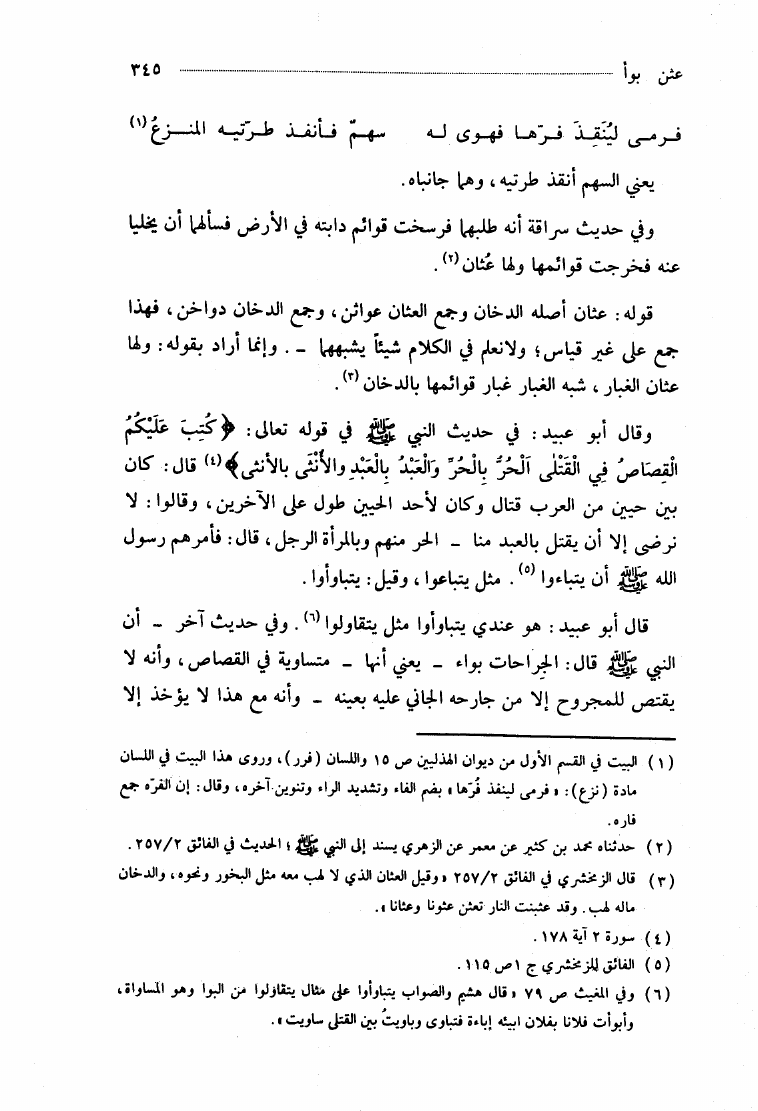 عثن بوأ ٣٤٥
فـرمـى لِيُنَقِـذَ فـرّهـا فهـوى لـه سهـمٌ فـأنفـذ طـرّتيـه المنـزعُ(١)
يعني السهم أنقذ طرتيه، وهما جانباه.
وفي حديث سراقة أنه طلبهما فرسخت قوائم دابته في الأرض فسألهما أن يخليا
عنه فخرجت قوائمها ولها عُثان(٢).
قوله: عثان أصله الدخان وجمع العثان عواثن، وجمع الدخان دواخن، فهذا
جمع على غير قياس؛ ولانعلم في الكلام شيئاً يشبههما - . وإنما أراد بقوله: ولها
عثان الغبار، شبه الغبار غبار قوائمها بالدخان(٣).
وقال أبو عبيد: في حديث النبي ﷺ في قوله تعالى: ﴿كُتِبَ عَلَيْكُمُ
الْقِصَاصُ فِي الْقَتْلٰى اَلْحُرُّ بِالْحُرِّ وَالْعَبْدُ بِالْعَبْدِ والأُنْثَى بالأنثى﴾(٤) قال: كان
بين حيين من العرب قتال وكان لأحد الحيين طول على الآخرين، وقالوا: لا
نرضى إلا أن يقتل بالعبد منا - الحر منهم وبالمرأة الرجل، قال: فأمرهم رسول
الله ﷺ أن يتباءوا(٥). مثل يتباعوا، وقيل: يتباوأوا.
قال أبو عبيد: هو عندي يتباوأوا مثل يتقاولوا(٦). وفي حديث آخر - أن
النبي ﷺ قال: الجراحات بواء - يعني أنها - متساوية في القصاص، وأنه لا
يقتص للمجروح إلا من جارحه الجاني عليه بعينه - وأنه مع هذا لا يؤخذ إلا
(١) البيت في القسم الأول من ديوان الهذليين ص ١٥ واللسان (فرر)، وروى هذا البيت في اللسان
مادة (نزع): «فرمى لينفذ فُرّها» بضم الفاء وتشديد الراء وتنوين آخره، وقال: إن الفرّه جمع
فاره.
(٢) حدثناه محمد بن كثير عن معمر عن الزهري يسند إلى النبي ﷺ؛ الحديث في الفائق ٢٥٧/٢.
(٣) قال الزمخشري في الفائق ٢٥٧/٢ «وقيل العثان الذي لا لهب معه مثل البخور ونحوه، والدخان
ماله لهب. وقد عثنت النار تعثن عثونا وعثانا».
(٤) سورة ٢ آية ١٧٨.
(٥) الفائق للزمخشري ج ١ص ١١٥.
(٦) وفي المغيث ص ٧٩ «قال هشيم والصواب يتباوأوا على مثال يتقاولوا من البوا وهو المساواة،
وأبوأت فلانا بفلان ابيئه إباءة فتباوى وباويتُ بين القتلى ساويت».